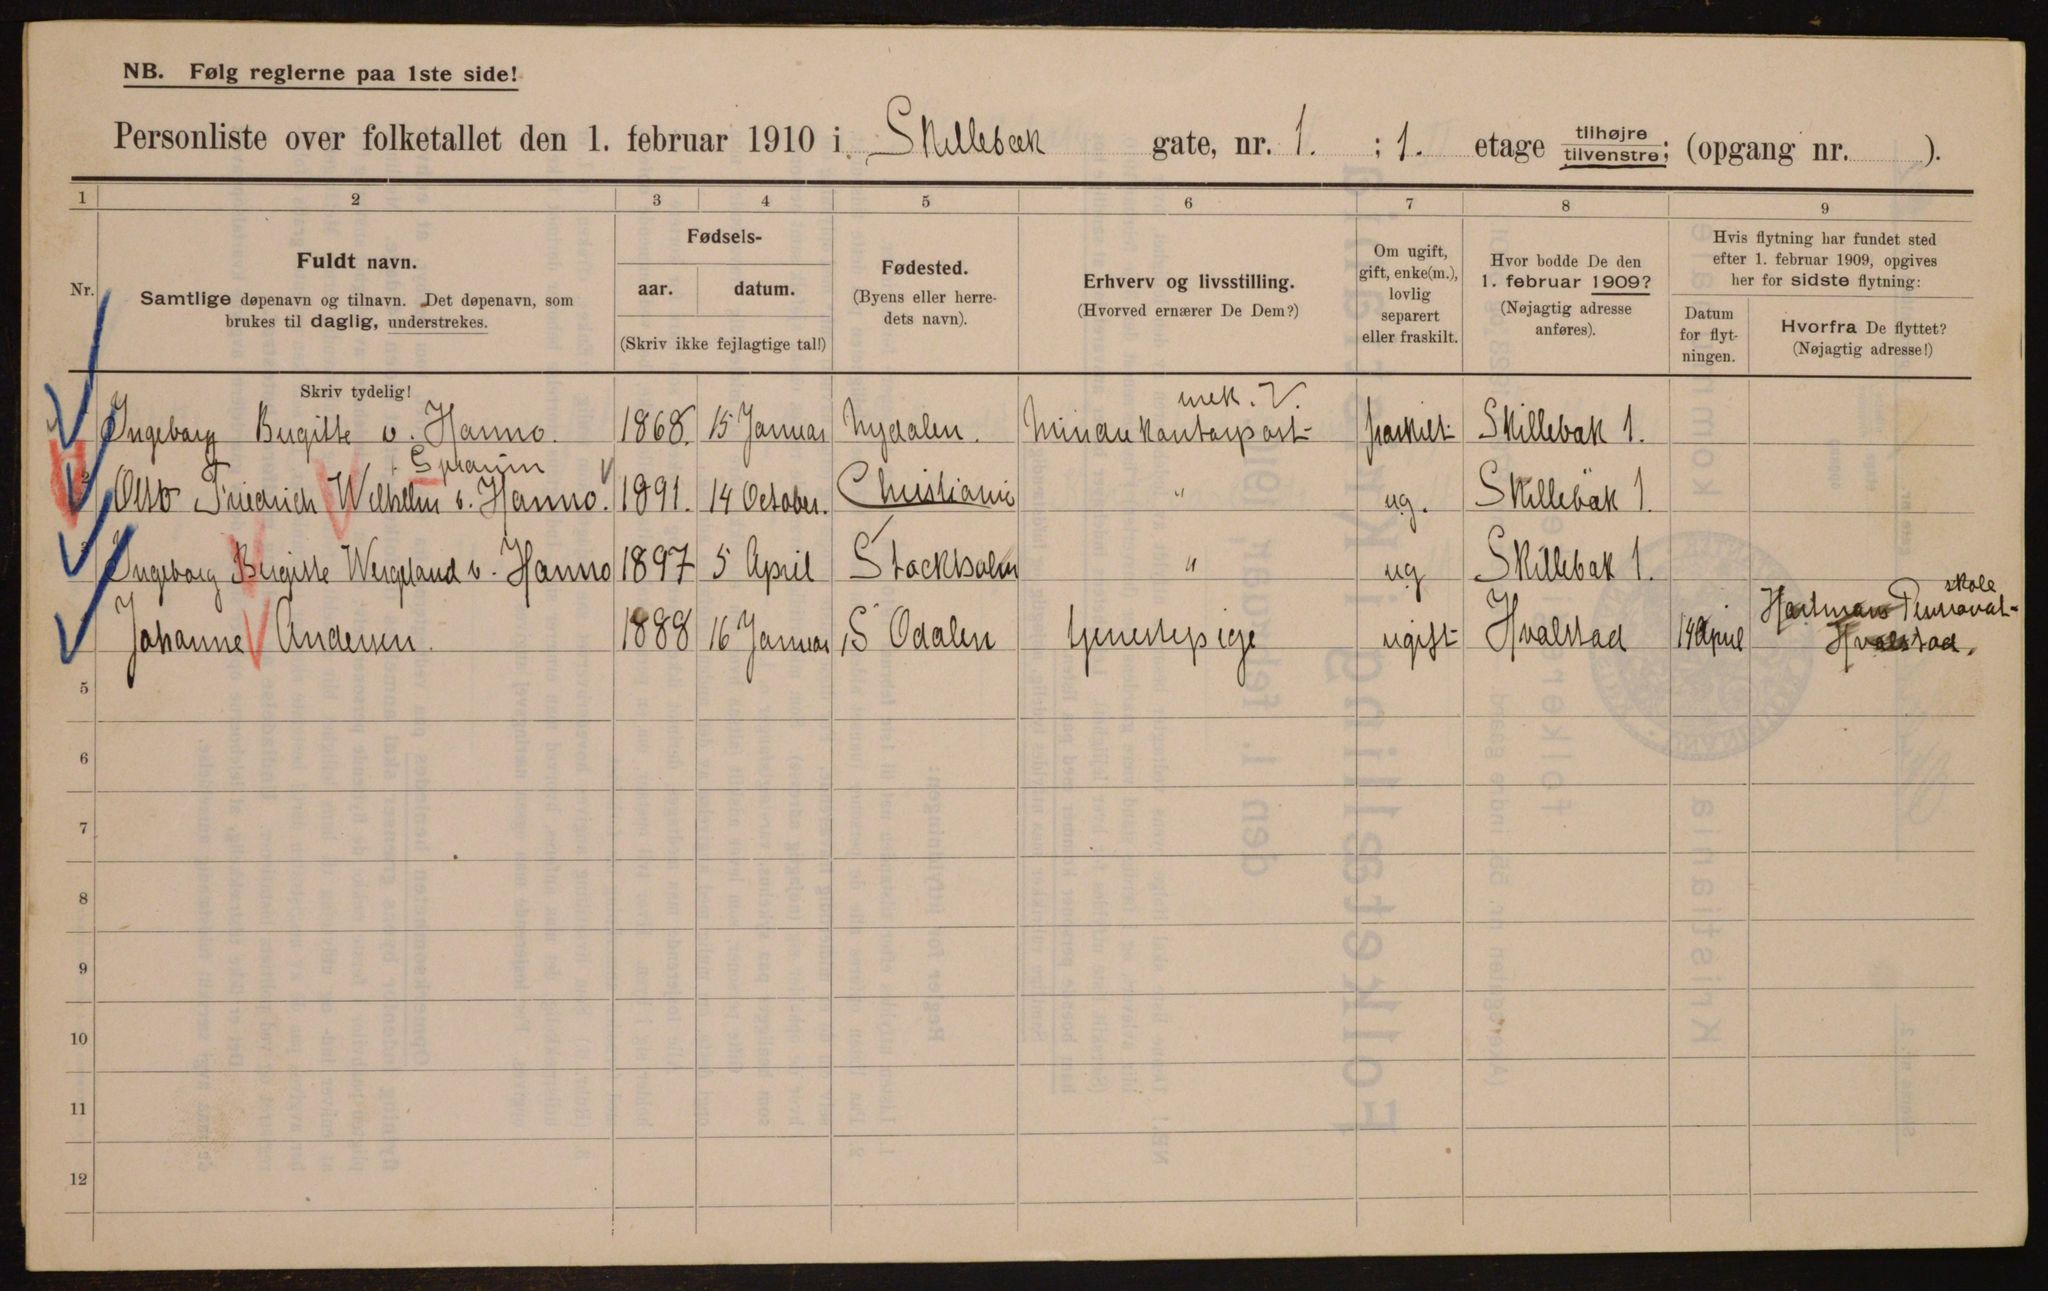 NB. Følg reglerne paa 1ste side!
Personliste over folketallet den 1. februar 1910 i Skillebæk gate, nr. 1. ; 1. etage tilhøjre tilvenstre; (opgang nr. ).
1 2 3 4 5 6 7 8 9
Nr.
Fuldt navn.
Samtlige døpenavn og tilnavn. Det døpenavn, som
brukes til daglig, understrekes.
Skriv tydelig!
Fødsels-
aar. datum.
(Skriv ikke fejlagtige tal!)
Fødested.
(Byens eller herre-
dets navn).
Erhverv og livsstilling.
(Hvorved ernærer De Dem?)
Om ugift,
gift, enke(m.),
lovlig
separert
eller fraskilt.
Hvor bodde De den
1. februar 1909?
(Nøjagtig adresse
anføres).
Hvis flytning har fundet sted
efter 1. februar 1909, opgives
her for sidste flytning:
Datum
for flyt-
ningen.
Hvorfra De flyttet?
(Nøjagtig adresse!)
mek. V.
Ingeborg Birgitte v. Hanno. 1868. 15 Januar Nydalen. fraskilt Skillebæk 1.
2 Otto Friedrich Wilhelm v. Hanno. 1891. 14 October. Christiania " ug. Skillebäk 1.
3 Ingeborg Birgitte Wergeland v. Hanno 1897 5 April Stockholm " ug Skillebæk 1.
skole
Johanne Andersen. 1888 16 Januar S Odalen tjenestepige ugift Hvalstad 14 April Hartmans
Hvalstad.
5
6
7
8
9
10
11
12